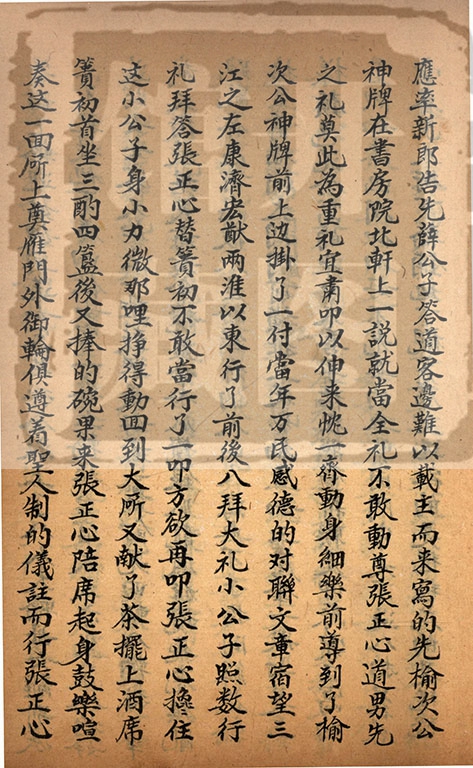 應率新郎告先薛公子答道客邊難以載主而来寫的先榆次公
神牌在書房院北軒上一説就當全礼不敢動尊張正心道男先
之礼莫此為重礼宜肅叩以伸来忱一齊動身細樂前導到了榆
次公神牌前上边掛了一付當年万民感德的对聯文章宿望三
江之左康濟宏猷兩淮以東行了前後八拜大礼小公子照数行
礼拜答張正心替簣初不敢當行了一叩方欲再叩張正心攙住
这小公子身小力微那哩挣得動回到大所又献了茶擺上酒席
簣初首坐三酌四簋後又捧的碗果来張正心陪席起身鼓樂喧
奏这一面所上奠雁門外御輪俱遵着聖人制的儀註而行張正心